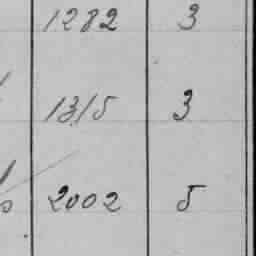 1282 3
1315 3
2002 5